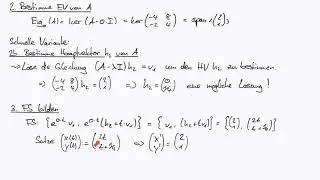 2. Bestimme EV von A
Eig₀(A) = ker(A-0·I) = ker(-4 8 -2 4) = span{(2 1)}
Schnelle Variante:
2b. Bestimme Hauptvektor h₂ von A
→ Löse die Gleichung (A-λI)h₂ = v₁ um den HV h₂ zu bestimmen
⇒ (-4 8 -2 4) h₂ = (2 1) ⇒ h₂ = (0 1/4) eine mögliche Lösung!
3. FS bilden
FS: {e^{0·t} v₁, e^{0·t}(h₂+t·v₁)} = {v₁, (h₂+t v₁)} = {(2 1), (2t t+1/4)}
Setze (x(t) y(t)) = (2t t+1/4) ⇒ (x' y') = (2 1)